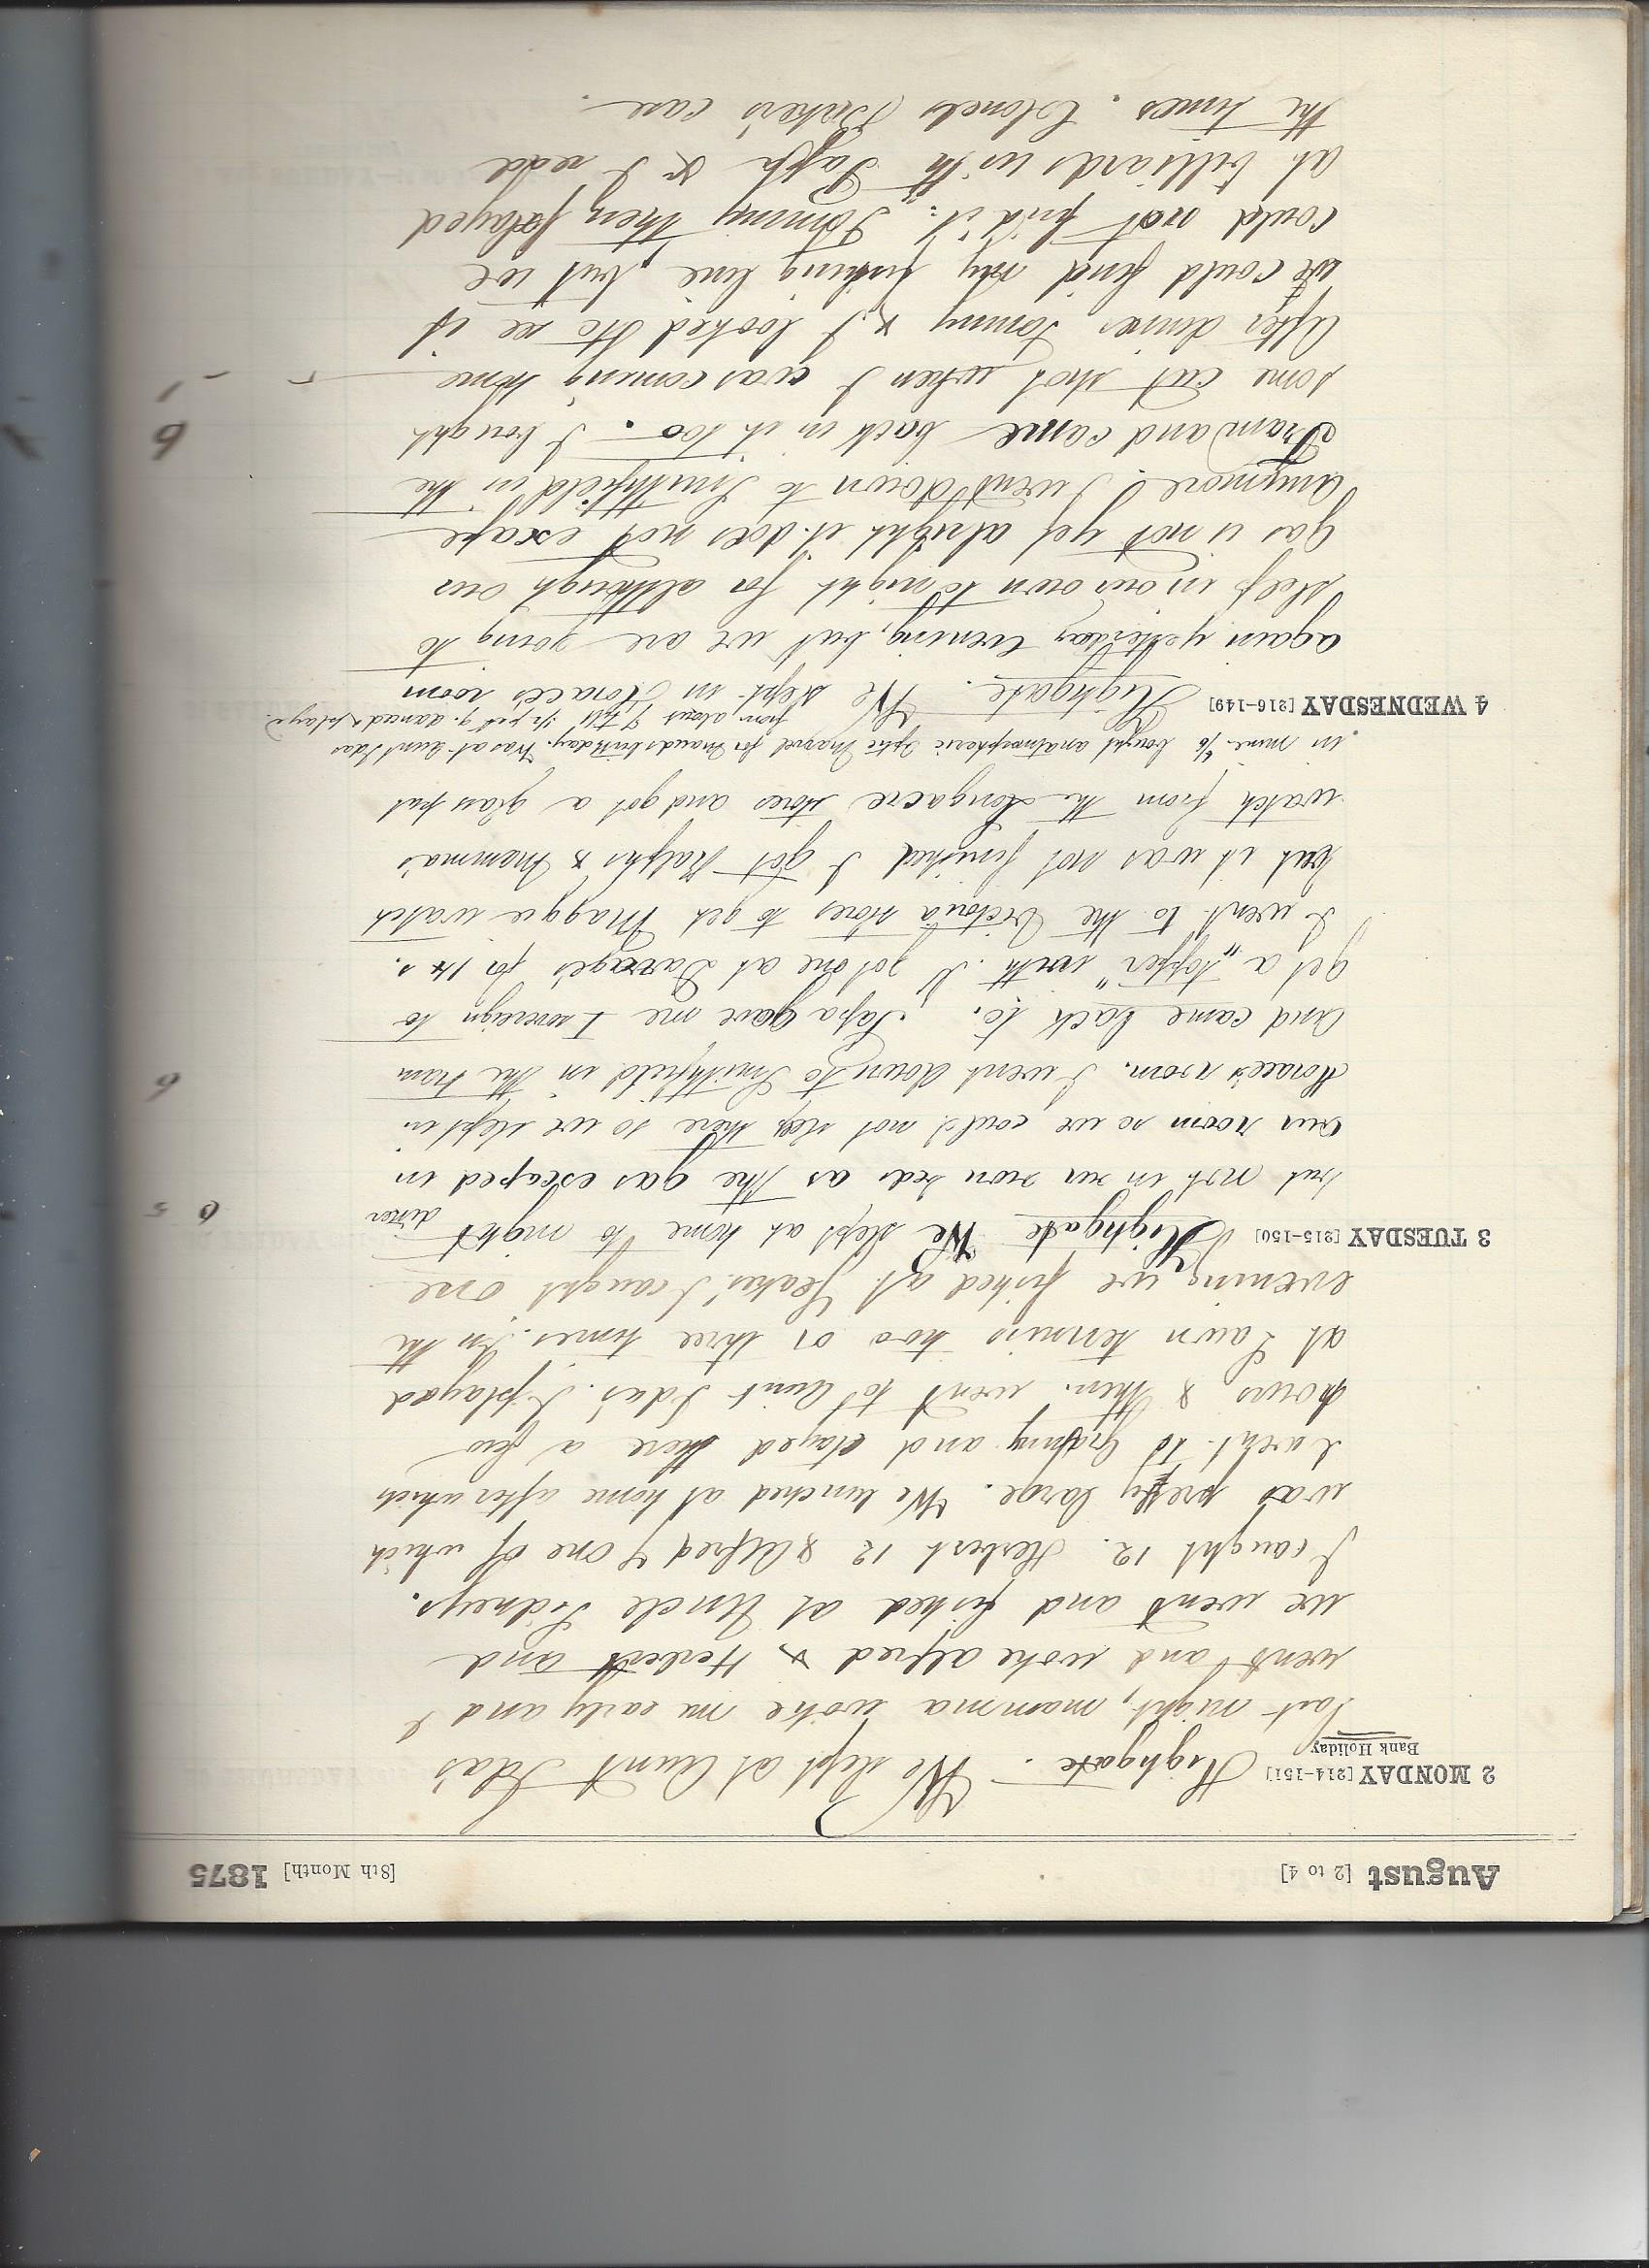 August [2 to 4] [8th Month] 1875
2 MONDAY [214-151] Highgate. We slept at Aunt Ida's
Bank Holiday
last night, mamma woke me early and I
went and woke alfred & Herbert and
we went and fished at Uncle Sidneys.
I caught 12. Herbert 12 & Alfred 4 one of which
was pretty large. We lunched at home after which
I went to Granny and stayed there a few
hours & then went to Aunt Idas. I played
at Lawn tennis two or three times. In the
evening we fished at Yeates' I caught one
3 TUESDAY [215-150] Highgate We slept at home to night
but not in our own beds as the gas escaped in
our room so we could not sleep there so we slept in
Horace's room. I went down to Smithfield in the tram
and came back to. Papa gave me 1 sovereign to
get a "topper" with. I got one at Davage's for 14 s.
I went to the Victoria stores to get Maggie watch
but it was not finished I got Ralphs & Mamma's
watch from the Longacre stores and got a glass put
in mine. bought Optic Marvel for Mauds birthday. Was at Aunt Idas
from about 7 till danced & played
4 WEDNESDAY [216-149] Highgate. We slept in Horace's room
again yesterday evening, but we are going to
sleep in our own tonight for although our
gas is not yet alright it does not escape
anymore. I went down to Smithfield in the
Tram and came back in it too. I bought
some cut shot when I was coming home
After dinner Tommy & I looked to see if
we could find my fishing line, but we
could not find it. Tommy then played
at billiards with Papa & I read
the times. Colonels Baker's case.